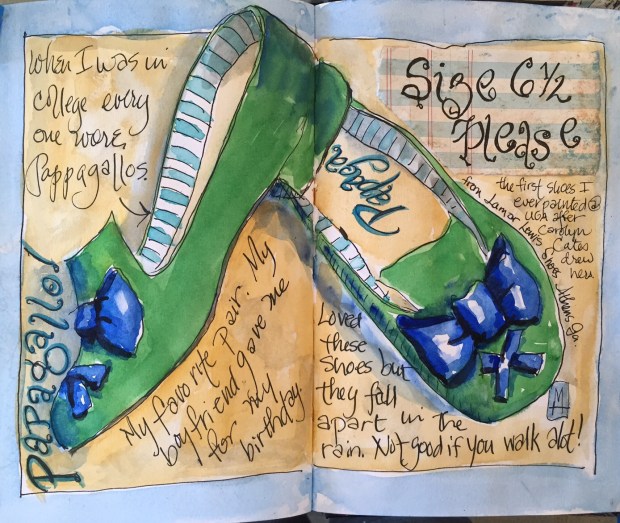 When I was in
college every
one wore
Pappagallos.
Papagallo!
My favorite pair. My
boyfriend gave me
for my
birthday.
Size 6 1/2
Please
Papaga
the first shoes I
ever painted @
UGA after
Carolyn
Cates
drew
hers
from Lamar Lewis Shoes Athens Ga.
Loved
these
shoes but
they fall
apart in the
rain. Not good if you walk alot!
M